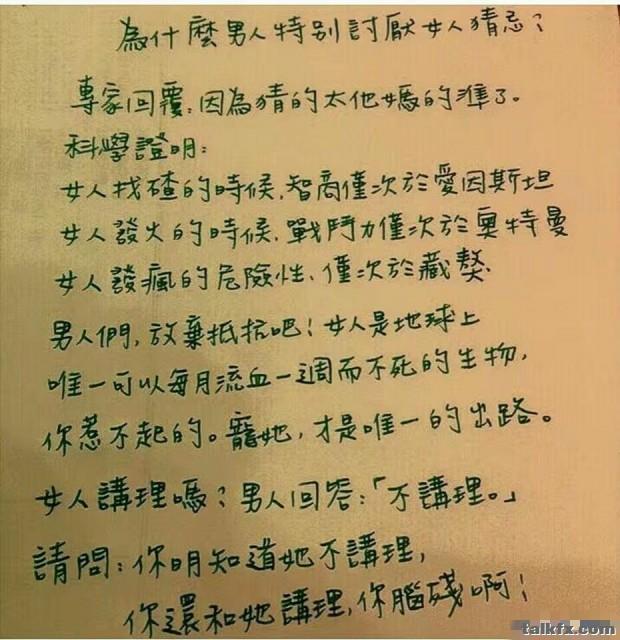 為什麼男人特別討厭女人猜忌?
專家回覆:因為猜的太他媽的準了。
科學證明:
女人找碴的時候,智商僅次於愛因斯坦
女人發火的時候,戰鬥力僅次於奧特曼
女人發瘋的危險性、僅次於藏獒
男人們,放棄抵抗吧!女人是地球上
唯一可以每月流血一週而不死的生物,
你惹不起的。寵她,才是唯一的出路。
女人講理嗎?男人回答:「不講理。」
請問:你明知道她不講理,
你還和她講理,你腦殘啊!
talkfx.com